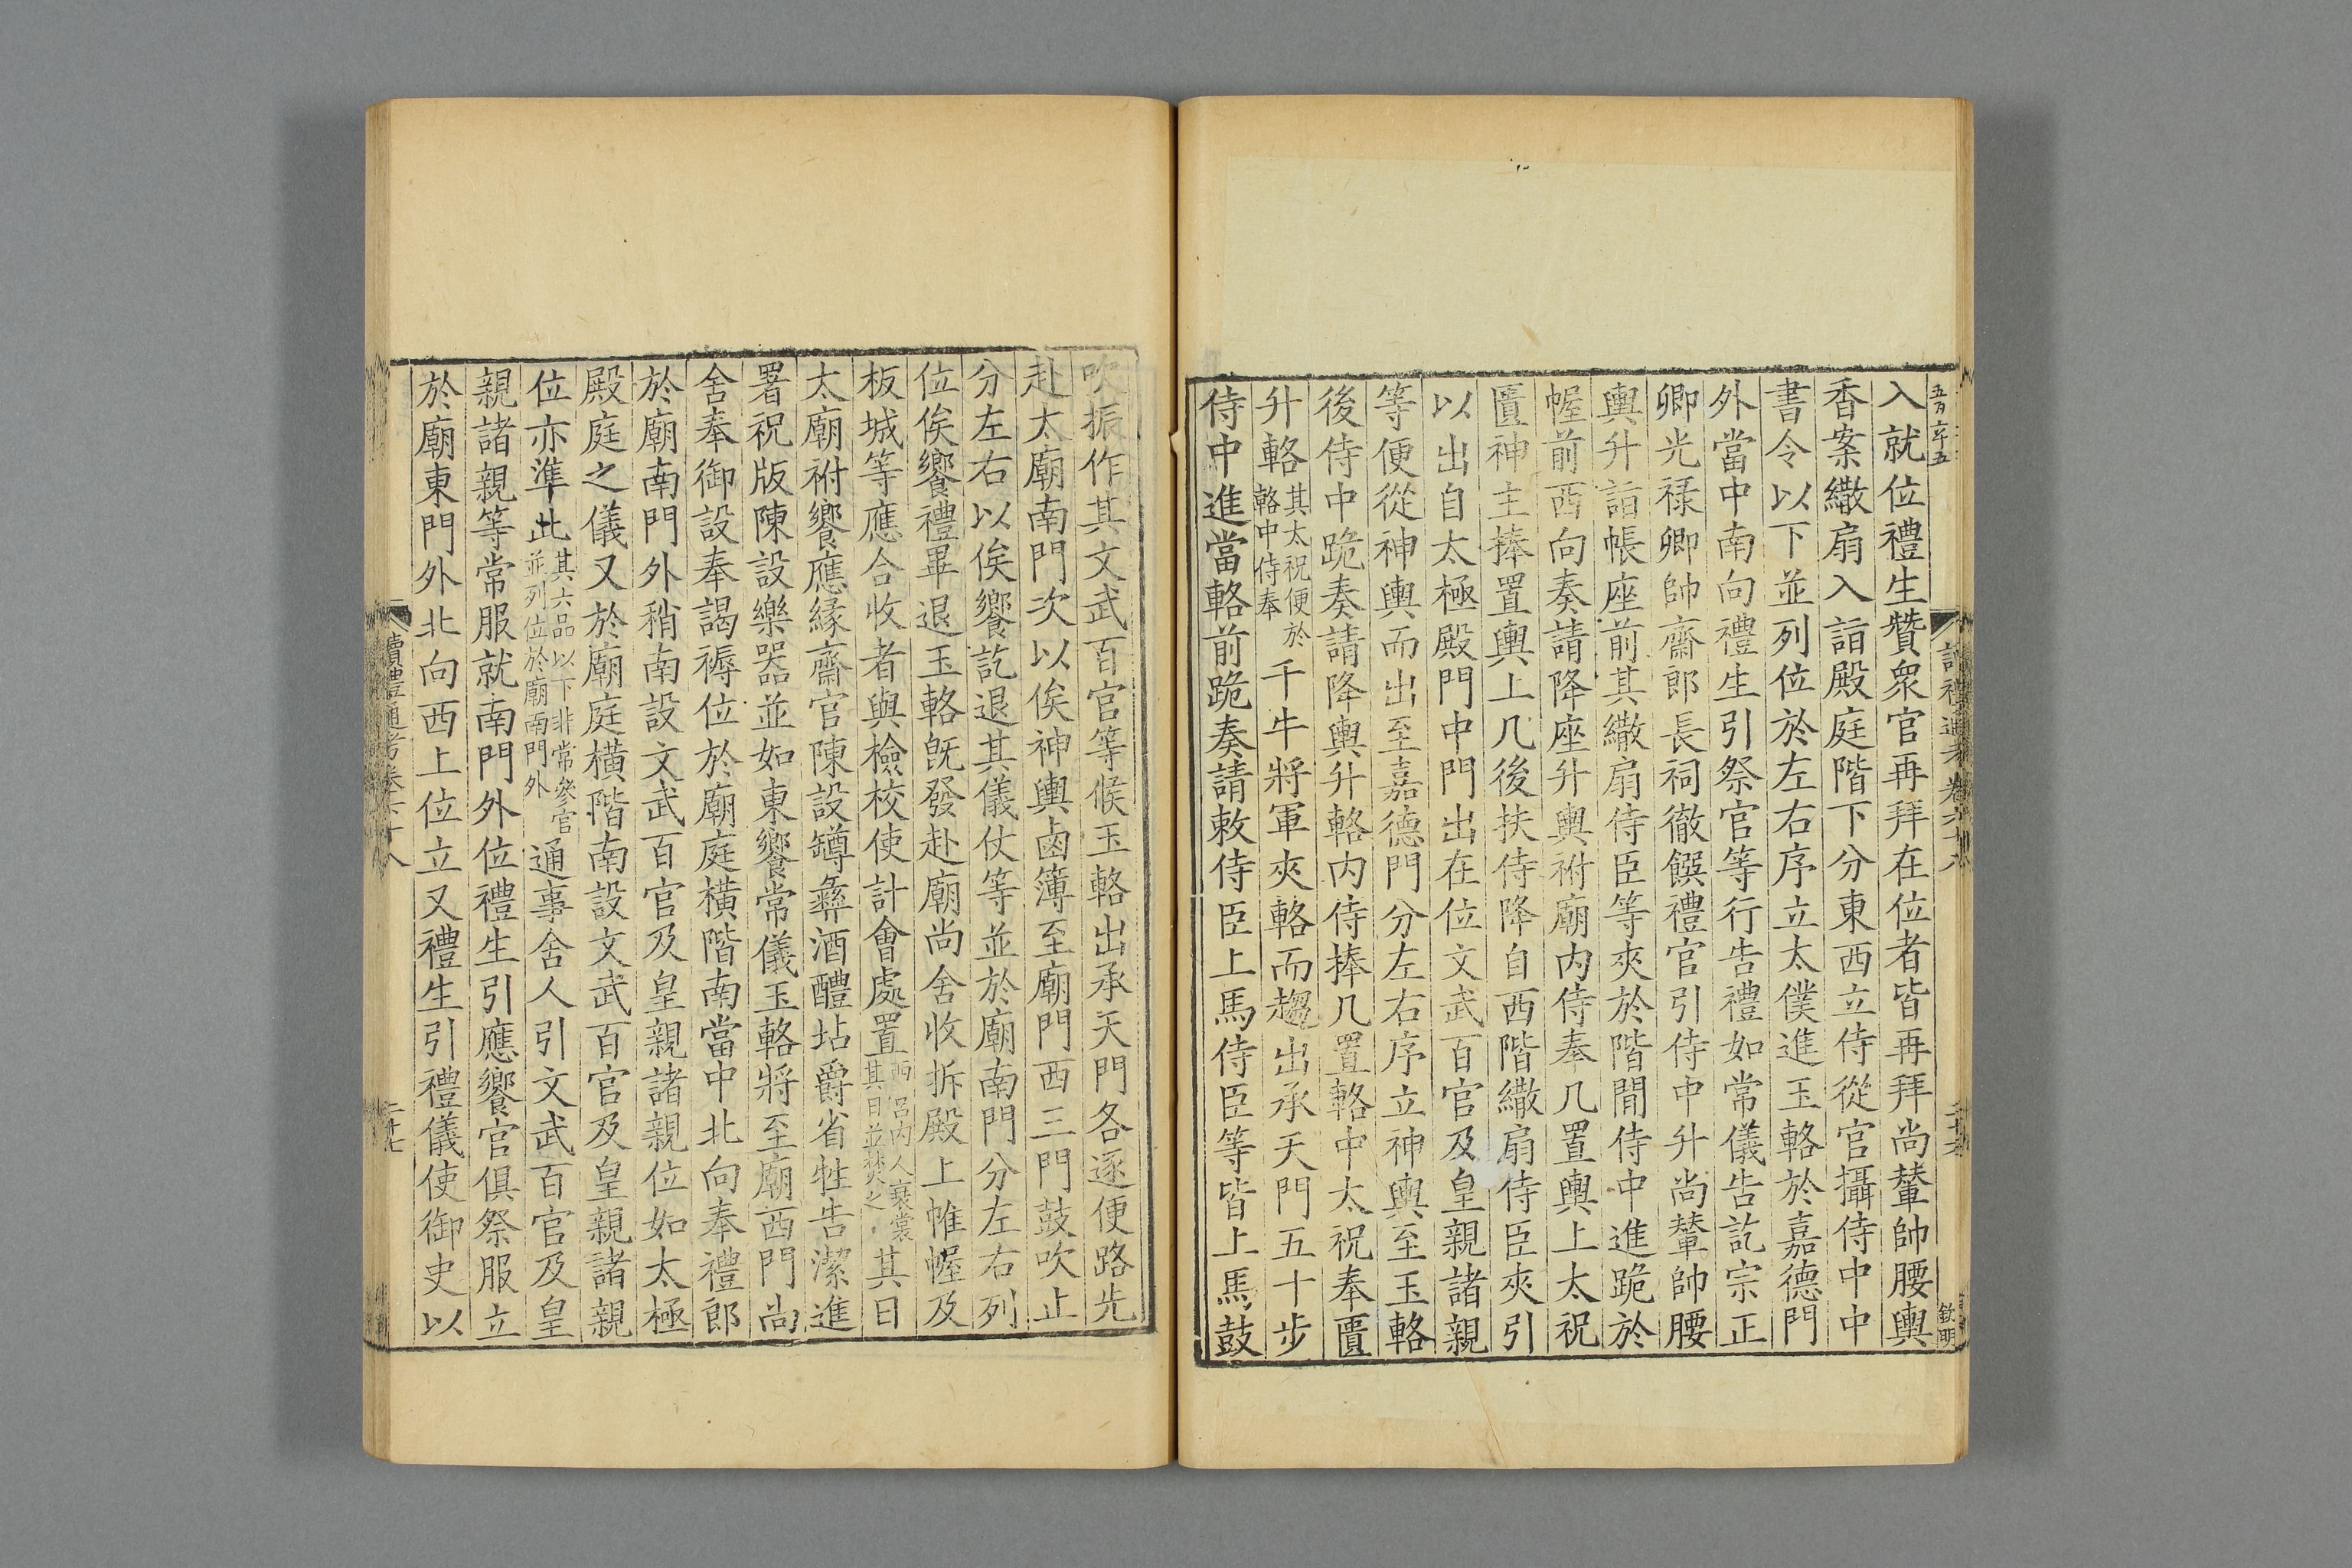 五百六十五
入就位禮生贊衆官再拜在位者皆再拜尚輦帥腰輿
香案繖扇入詣殿庭階下分東西立侍從官攝侍中中
書令以下並列位於左右序立太僕進玉輅於嘉德門
外當中南向禮生引祭官等行告禮如常儀告訖宗正
卿光祿卿帥齋郎長祠徹饌禮官引侍中升尚輦帥腰
輿升詣帳座前其繖扇侍臣等夾於階間侍中進跪於
幄前西向奏請降座升輿祔廟内侍奉几置輿上太祝
匱神主捧置輿上几後扶侍降自西階繖扇侍臣夾引
以出自太極殿門中門出在位文武百官及皇親諸親
等便從神輿而出至嘉德門分左右序立神輿至玉輅
後侍中跪奏請降輿升輅内侍捧几置輅中太祝奉匱
升輅其太祝便於輅中侍奉千牛將軍夾輅而趨出承天門五十步
侍中進當輅前跪奏請敕侍臣上馬侍臣等皆上馬鼓
讀禮通考卷六十八
欽明
吹振作其文武百官等候玉輅出承天門各逐便路先
赴太廟南門次以俟神輿鹵簿至廟門西三門鼓吹止
分左右以俟饗訖退其儀仗等並於廟南門分左右列
位俟饗禮畢退玉輅既發赴廟尚舍收拆殿上帷幄及
板城等應合收者與檢校使計會處置西呂内人衰裳其日並焚之其日
太廟祔饗應緣齋官陳設罇彝酒醴坫爵省牲告潔進
署祝版陳設樂器並如東饗常儀玉輅將至廟西門尚
舍奉御設奉謁褥位於廟庭橫階南當中北向奉禮郎
於廟南門外稍南設文武百官及皇親諸親位如太極
殿庭之儀又於廟庭橫階南設文武百官及皇親諸親
位亦準此其六品以下非常參官並列位於廟南門外通事舍人引文武百官及皇
親諸親等常服就南門外位禮生引應饗官俱祭服立
於廟東門外北向西上位立又禮生引禮儀使御史以
讀禮通考卷六十八
二十七